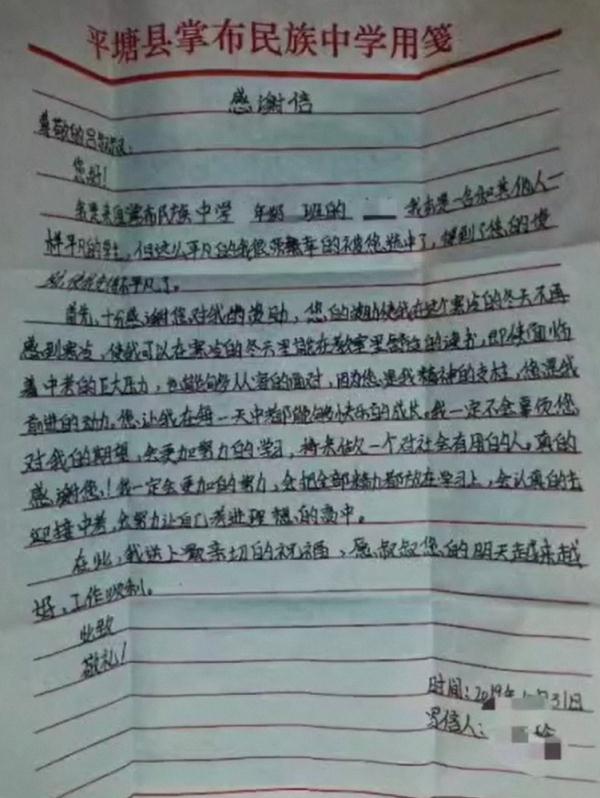 平塘县掌布民族中学用笺
感谢信
尊敬的吕叔叔:
您好!
我是来自掌布民族中学 年级 班的 我本是一名和其他人一
样平凡的学生,但这么平凡的我您荣幸的被您选中了,得到了您的
首先,十分感谢您对我的资助,您的资助使我在这个寒冷的冬天不再
感到寒冷,使我可以在寒冷的冬天里能在教室里舒适的读书,即使面临
着中考的巨大压力,也能够从容的面对,因为您是我精神的支柱,您是我
前进的动力。您让我在每一天中都能够快乐的成长。我一定不会辜负您
对我的期望,会更加努力的学习,将来做一个对社会有用的人。真的
感谢您!我一定会更加的努力,会把全部精力都放在学习上,会认真的去
迎接中考,会努力让自己考进理想的高中。
在此,我送上最亲切的祝福,愿叔叔您的明天越来越
好,工作顺利。
此致
敬礼!
时间:2019年 月31日
写信人: